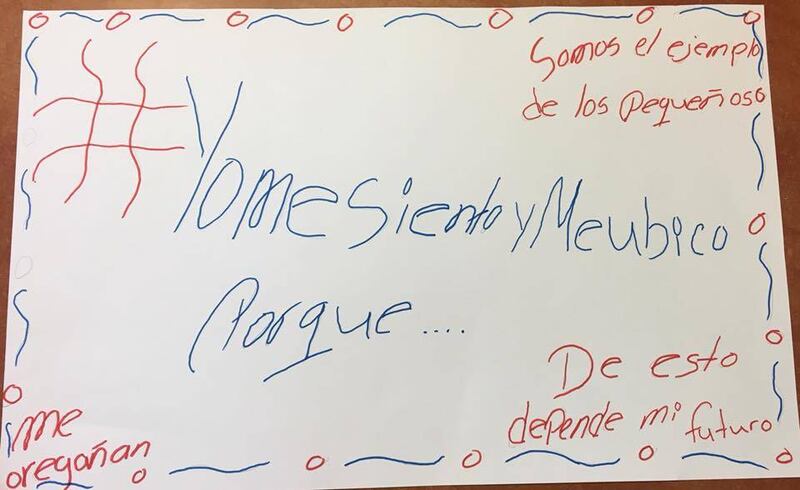 Somos el ejemplo
de los pequeños
#YomeSientoyMeubico
Porque....
De esto
depende mi futuro
Me
oregañan